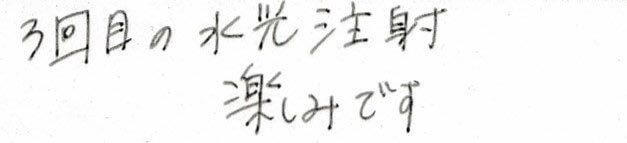 3回目の水光注射
楽しみです